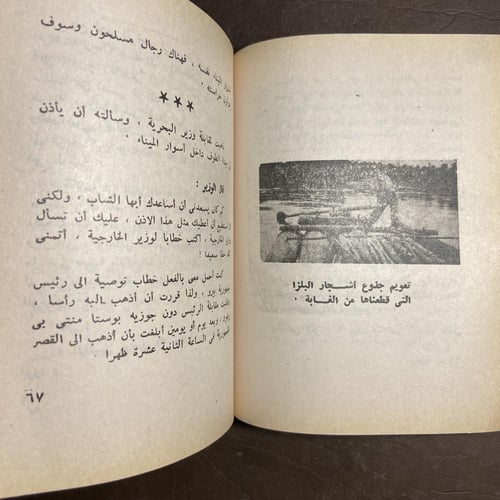 نفسه ، فهناك رجال مسلحون وسوف
***
لمقابلة وزير البحرية ، وسألته أن يأذن
الطوف داخل أسوار الميناء .
قال الوزير :
كم كان يسعدنى أن أساعدك أيها الشاب ، ولكنى
أستطيع أن أعطيك مثل هذا الاذن ، عليك أن تسأل
الخارجية ، اكتب خطابا لوزير الخارجية ، أتمنى
لك حظا سعيدا !
كنت أحمل معى بالفعل خطاب توصية الى رئيس
جمهورية بيرو ، ولذا قررت أن أذهب اليه رأسا ،
مقابلة الرئيس دون جوزيه بوستا منتى بى
وبعد يوم أو يومين أبلغت بأن أذهب الى القصر
فى الساعة الثانية عشرة ظهرا .
٦٧
تعويم جذوع أشجار البلزا
التى قطعناها من الغابة .